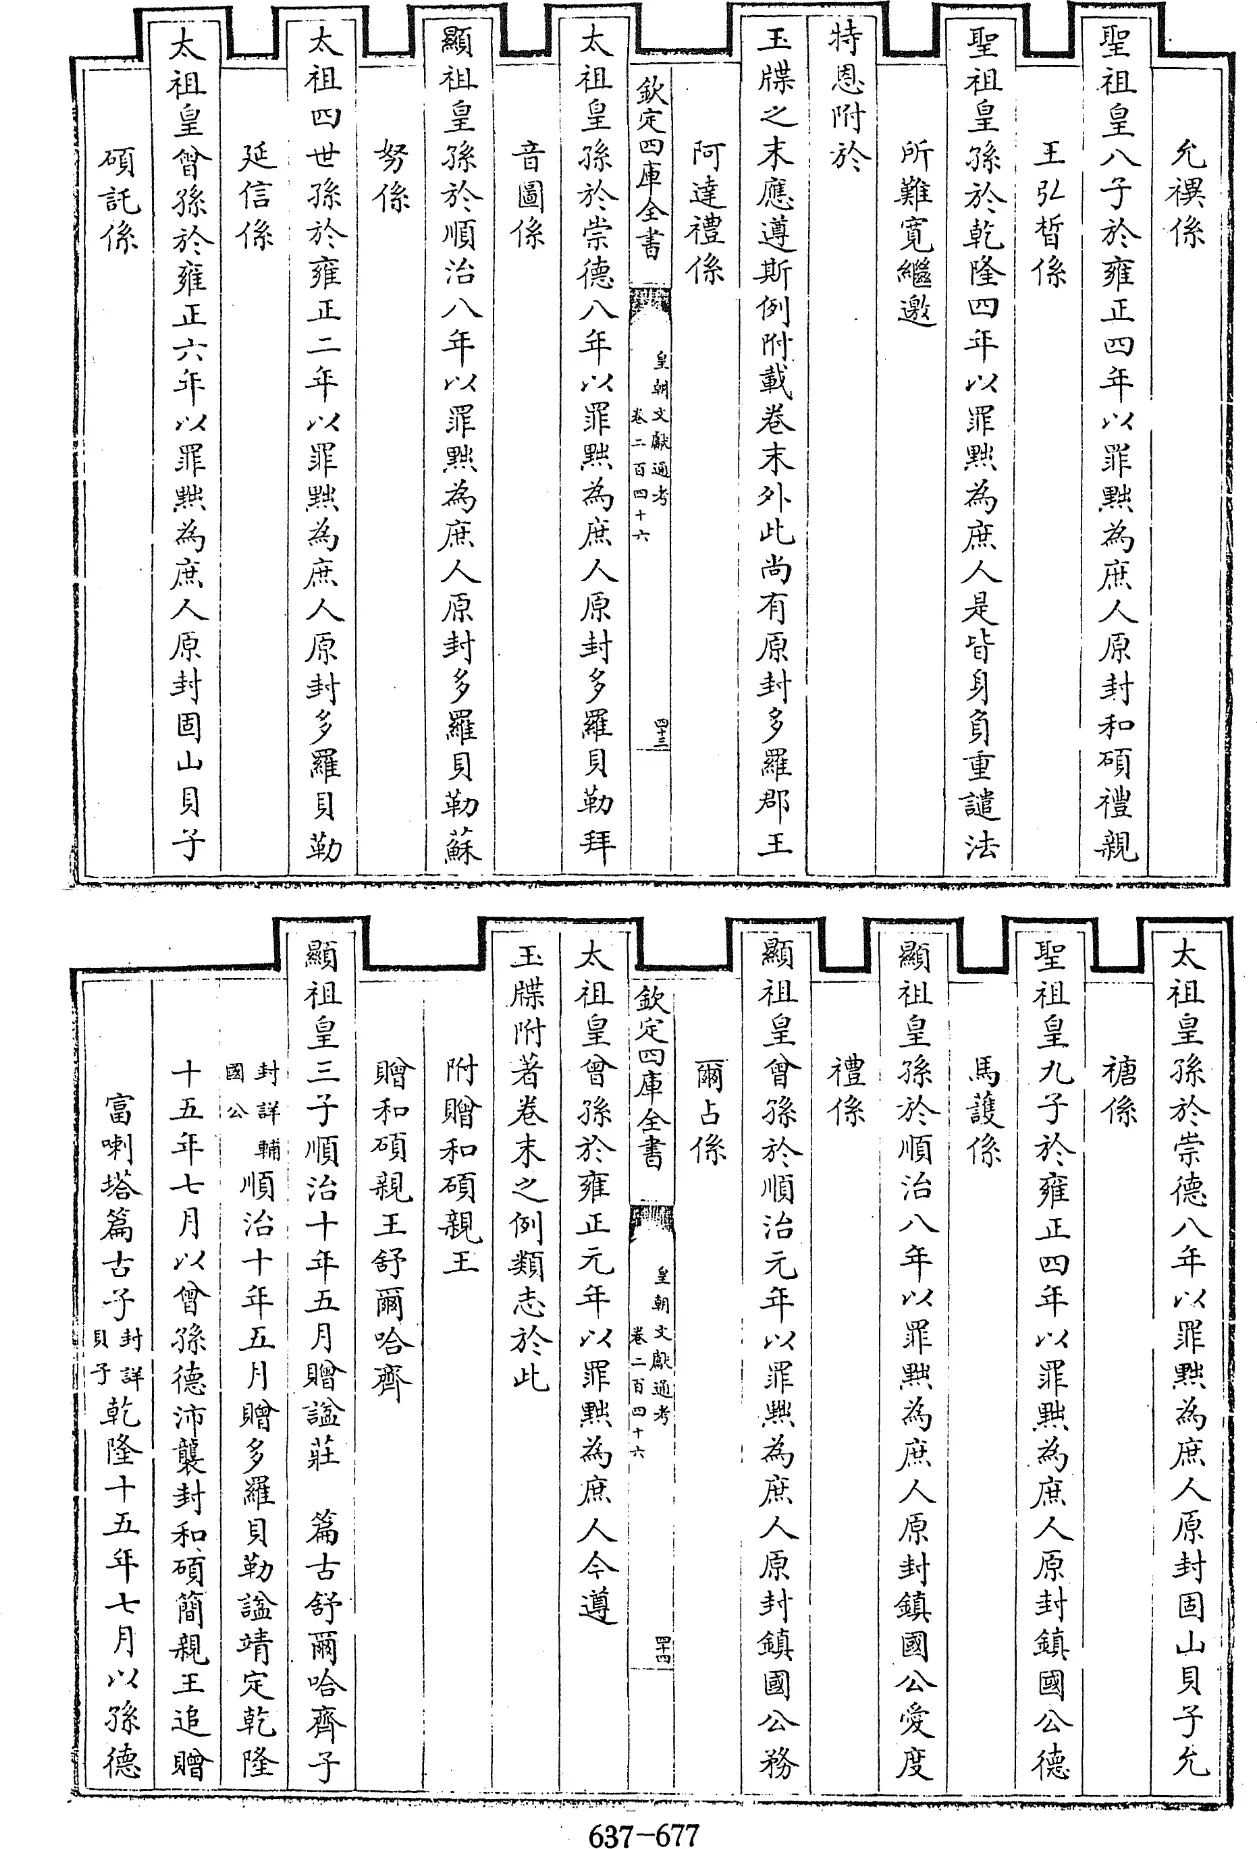 允禩係
聖祖皇八子於雍正四年以罪黜為庶人原封和碩禮親
王弘晳係
聖祖皇孫於乾隆四年以罪黜為庶人是皆身負重譴法
所難寛繼邀
特恩附於
玉牒之末應遵斯例附載卷末外此尚有原封多羅郡王
阿達禮係
欽定四庫全書
皇朝文獻通考
卷二百四十六
四十三
太祖皇孫於崇德八年以罪黜為庶人原封多羅貝勒拜
音圖係
顯祖皇孫於順治八年以罪黜為庶人原封多羅貝勒蘇
努係
太祖四世孫於雍正二年以罪黜為庶人原封多羅貝勒
延信係
太祖皇曾孫於雍正六年以罪黜為庶人原封固山貝子
碩託係
太祖皇孫於崇德八年以罪黜為庶人原封固山貝子允
禟係
聖祖皇九子於雍正四年以罪黜為庶人原封鎮國公德
馬護係
顯祖皇孫於順治八年以罪黜為庶人原封鎮國公愛度
禮係
顯祖皇曾孫於順治元年以罪黜為庶人原封鎮國公務
爾占係
欽定四庫全書
皇朝文獻通考
卷二百四十六
四十四
太祖皇曾孫於雍正元年以罪黜為庶人今遵
玉牒附著卷末之例類志於此
附贈和碩親王
贈和碩親王舒爾哈齊
顯祖皇三子順治十年五月贈謚莊 篇古舒爾哈齊子
封詳輔
國公
順治十年五月贈多羅貝勒謚靖定乾隆
十五年七月以曾孫德沛襲封和碩簡親王追贈
富喇塔篇古子
封詳
貝子
乾隆十五年七月以孫德
637-677